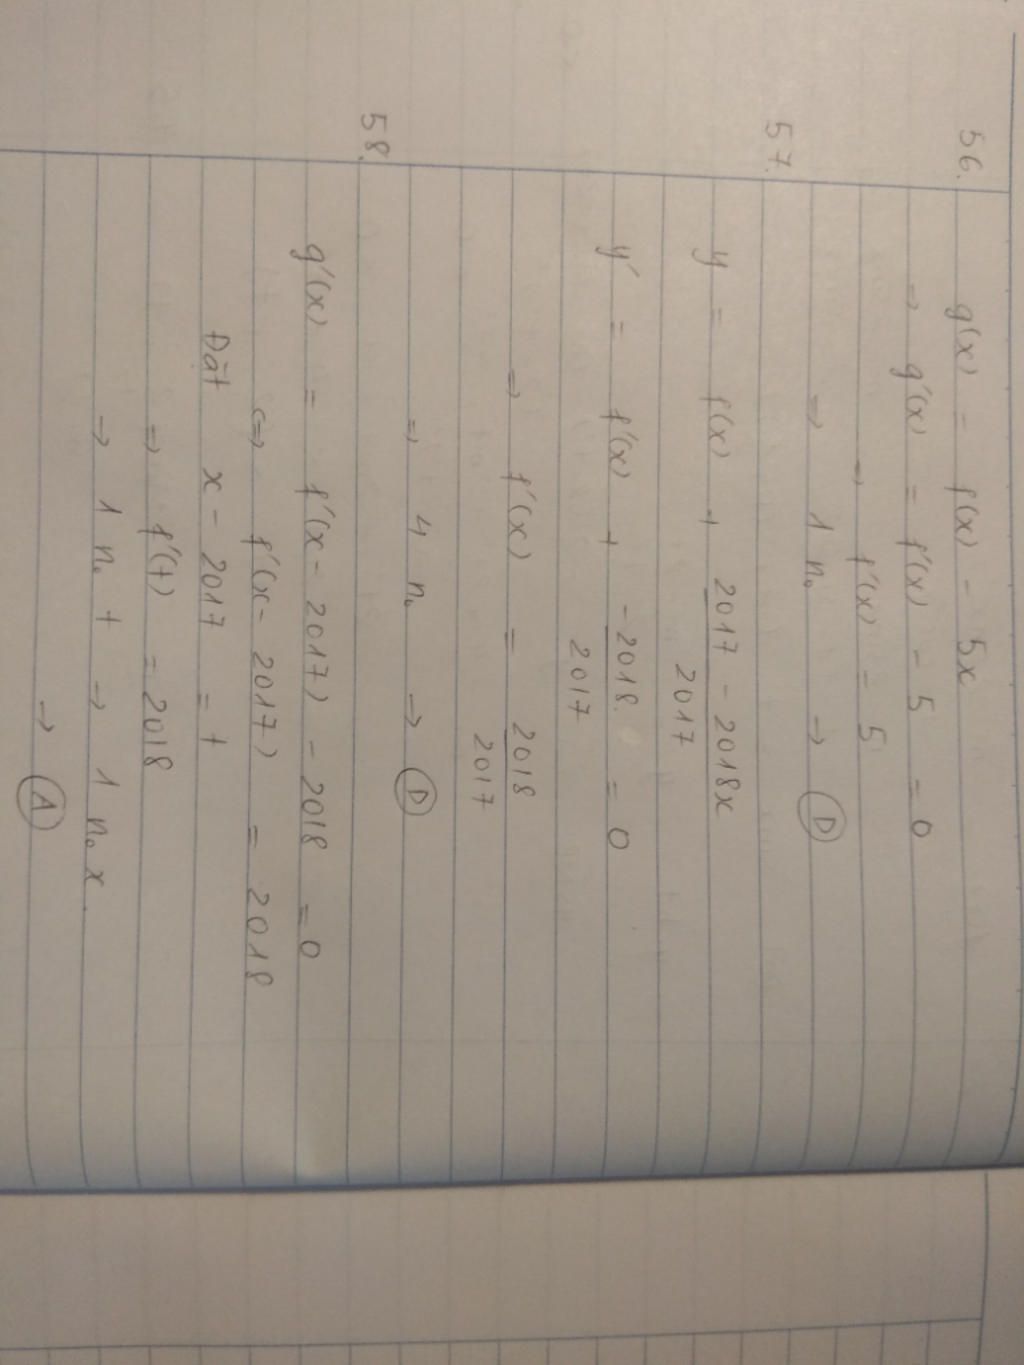 56. g(x) = f(x) - 5x
⇒ g'(x) = f'(x) - 5 = 0
⇒ f'(x) = 5
⇒ 1 no → D
57.
y = f(x) + \frac{2017 - 2018x}{2017}
y' = f'(x) + \frac{-2018}{2017} = 0
⇒ f'(x) = \frac{2018}{2017}
⇒ 4 no → D
58.
g'(x) = f'(x - 2017) - 2018 = 0
⇔ f'(x - 2017) = 2018
Đặt x - 2017 = t
⇒ f'(t) = 2018
→ 1 no t → 1 no x.
→ A